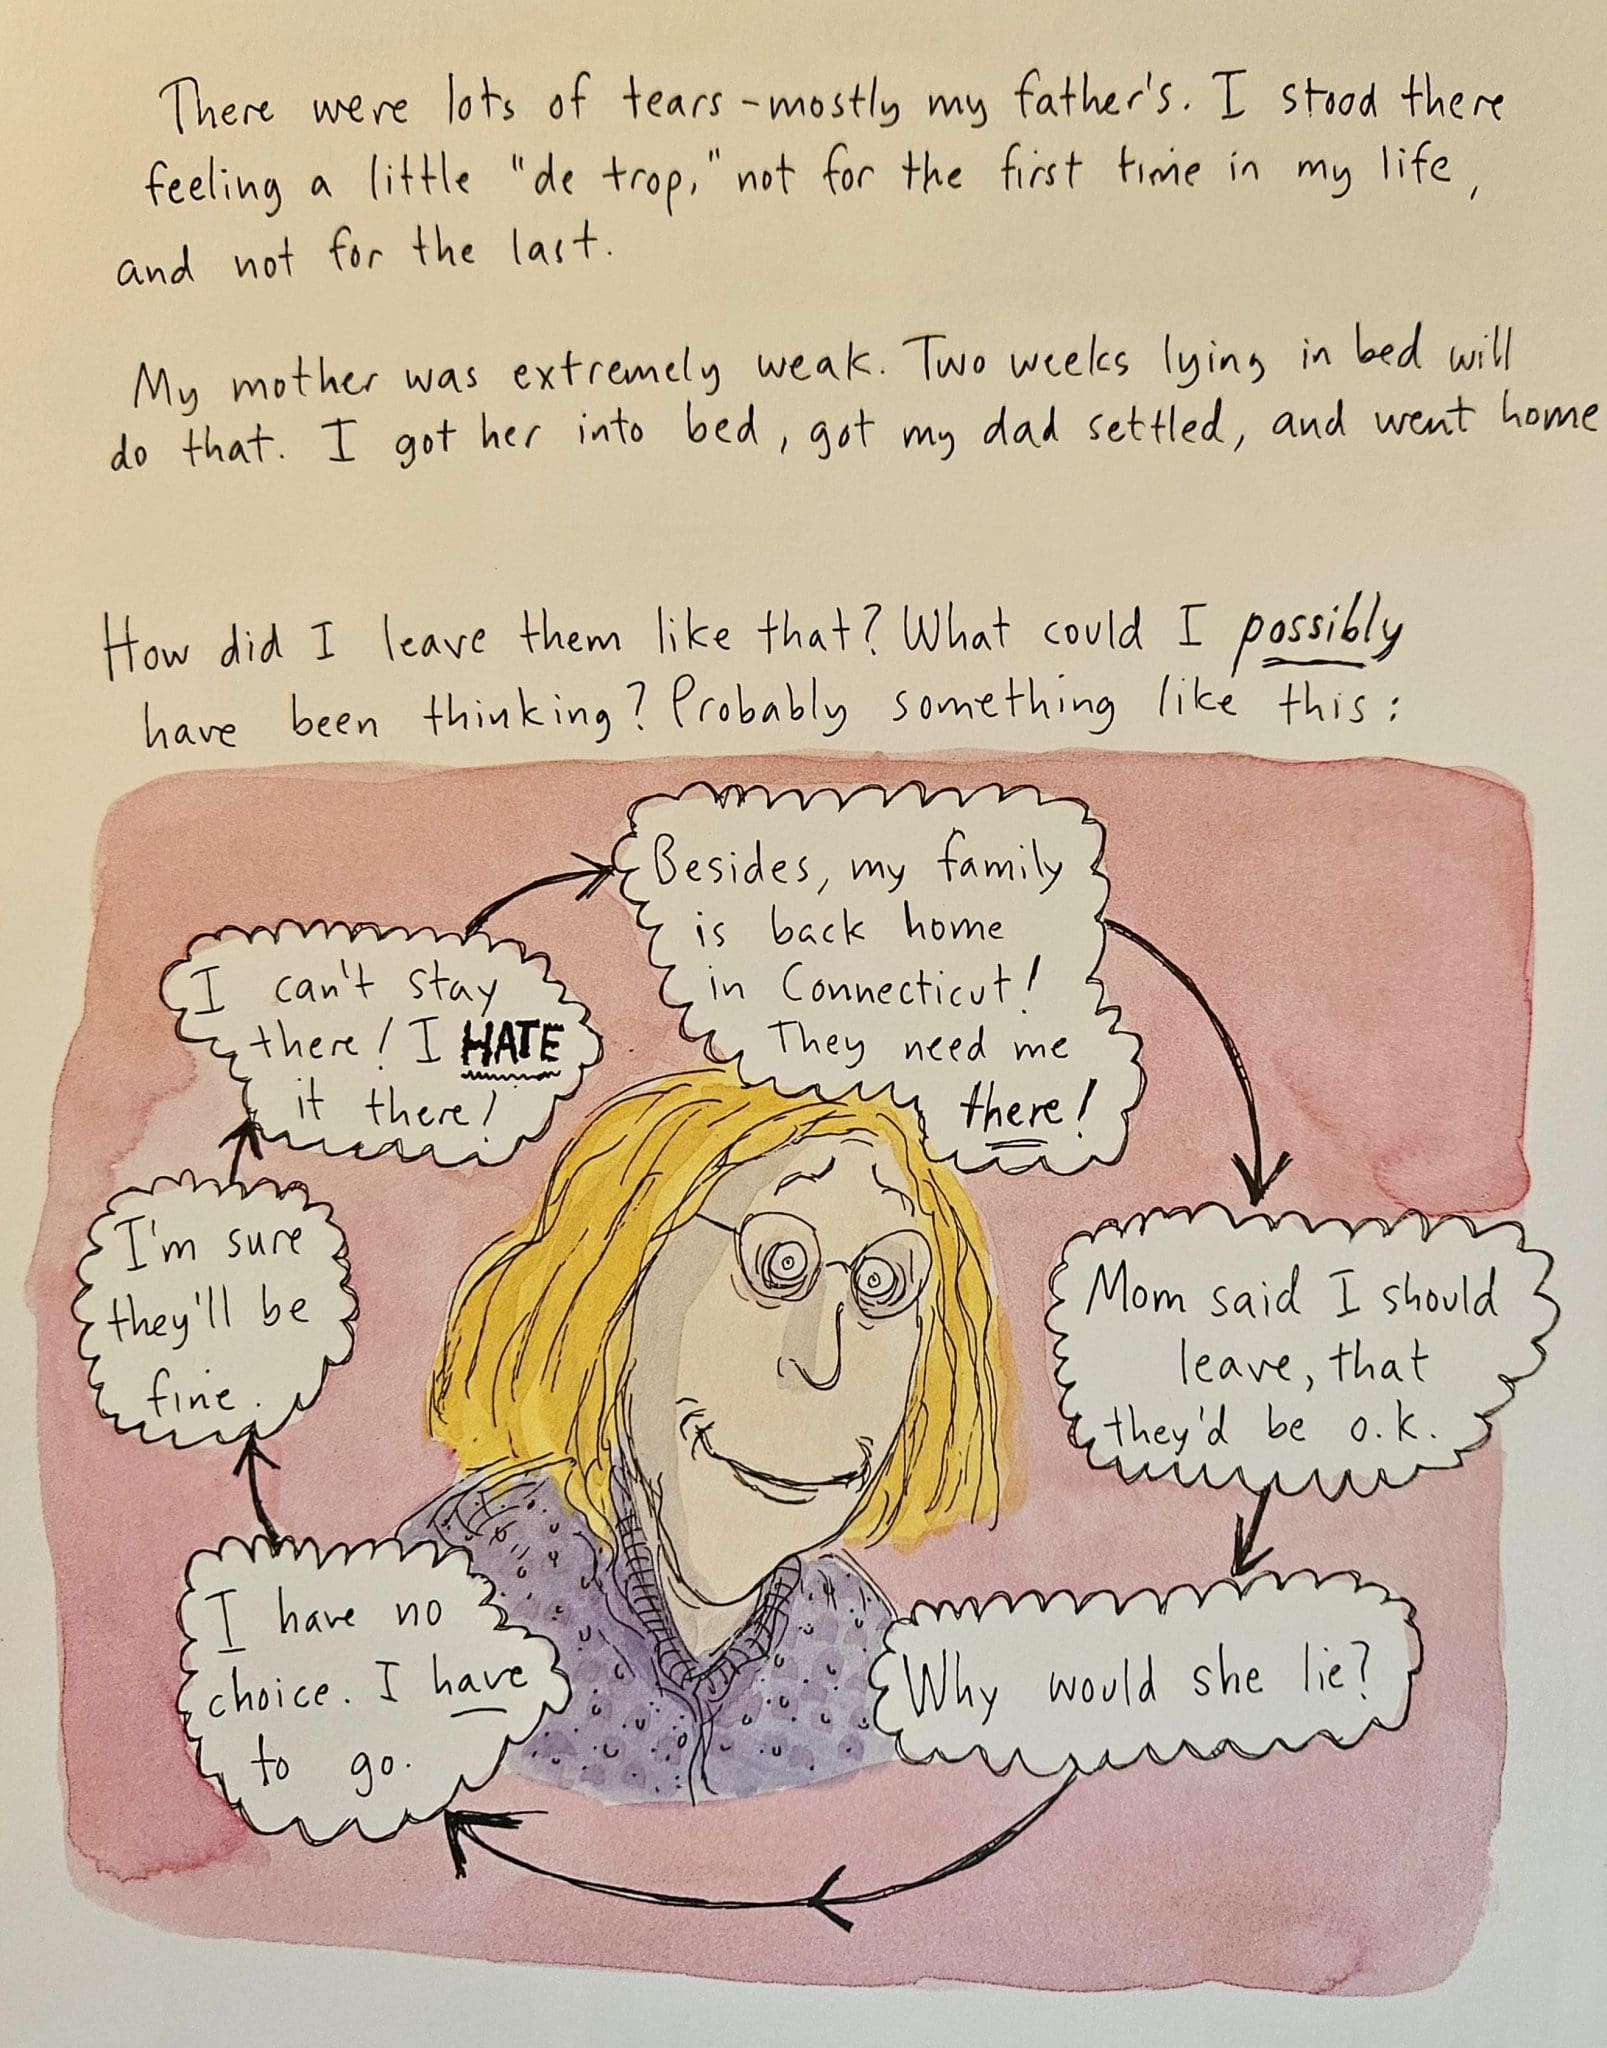 There were lots of tears - mostly my father's. I stood there
feeling a little "de trop," not for the first time in my life,
and not for the last.
My mother was extremely weak. Two weeks lying in bed will
do that. I got her into bed, got my dad settled, and went home
How did I leave them like that? What could I possibly
have been thinking? Probably something like this:
Besides, my family
is back home
in Connecticut!
They need me
there!
Mom said I should
leave, that
they'd be o.k.
Why would she lie?
I have no
choice. I have
to go.
I'm sure
they'll be
fine.
I can't stay
there! I HATE
it there!